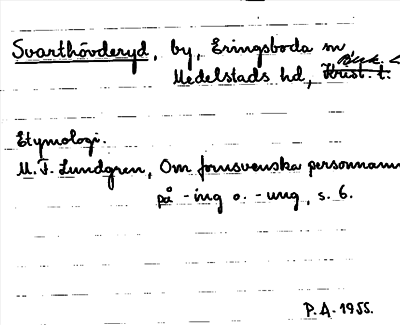 Svarthövderyd, by, Eringsboda sn,
Blek. l.
Medelstads hd, Krist. l.
Etymologi.
M. F. Lundgren, Om fornsvenska personnamn
på -ing o. -ung, s. 6.
P.A. 1955.